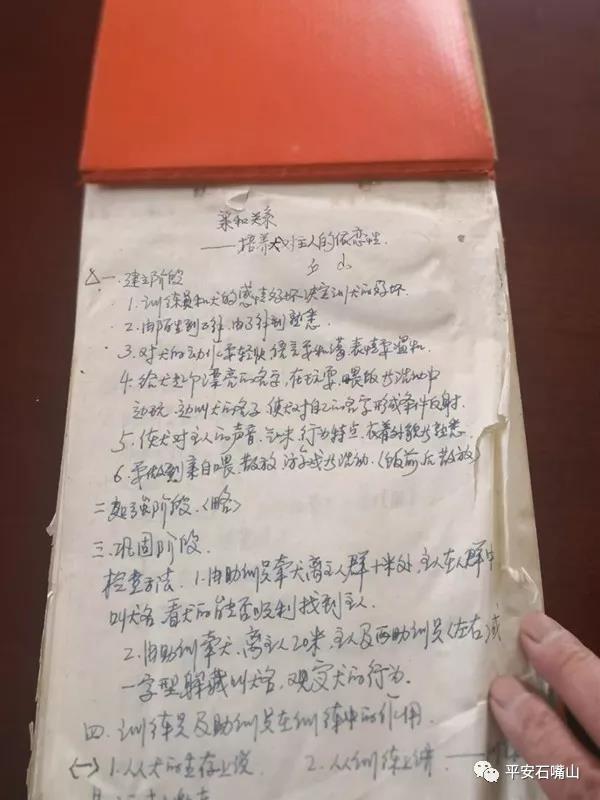 亲和关系
——培养犬对主人的依恋性.
一.建立阶段
1.训练员和犬的感情好坏决定训犬的好坏.
2.由陌生到了解,由了解到熟悉.
3.对犬的动作要轻快,语言要和蔼,表情要温和.
4.给犬起个漂亮的名字,在玩耍、喂饭等活动中
边玩,边叫犬的名字,使犬对自己的名字形成条件反射.
5.使犬对主人的声音、气味、行为特点、衣着外貌等熟悉.
6.要做到亲自喂、散放、游戏等活动.(饭前后散放)
二.加强阶段.(略)
三.巩固阶段.
检查方法.1.由助训员牵犬离主人群十米处,主人在人群中
叫犬名,看犬的能否顺利找到主人.
2.由助训牵犬,离主人20米,主人及两助训员(左右)或
一字型躲藏叫犬名,观察犬的行为.
四.训练员及助训员在训练中的作用.
(一)1.从犬的生存上说 2.从训练上讲.——
平安石嘴山